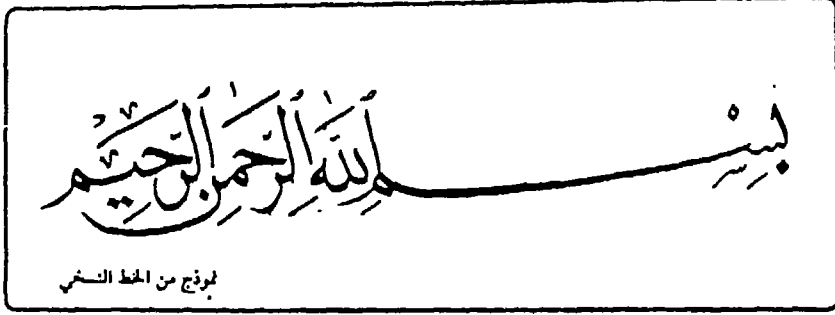 بِسْمِ اللَّهِ الرَّحْمٰنِ الرَّحِيمِ
نموذج من الخط النسخي